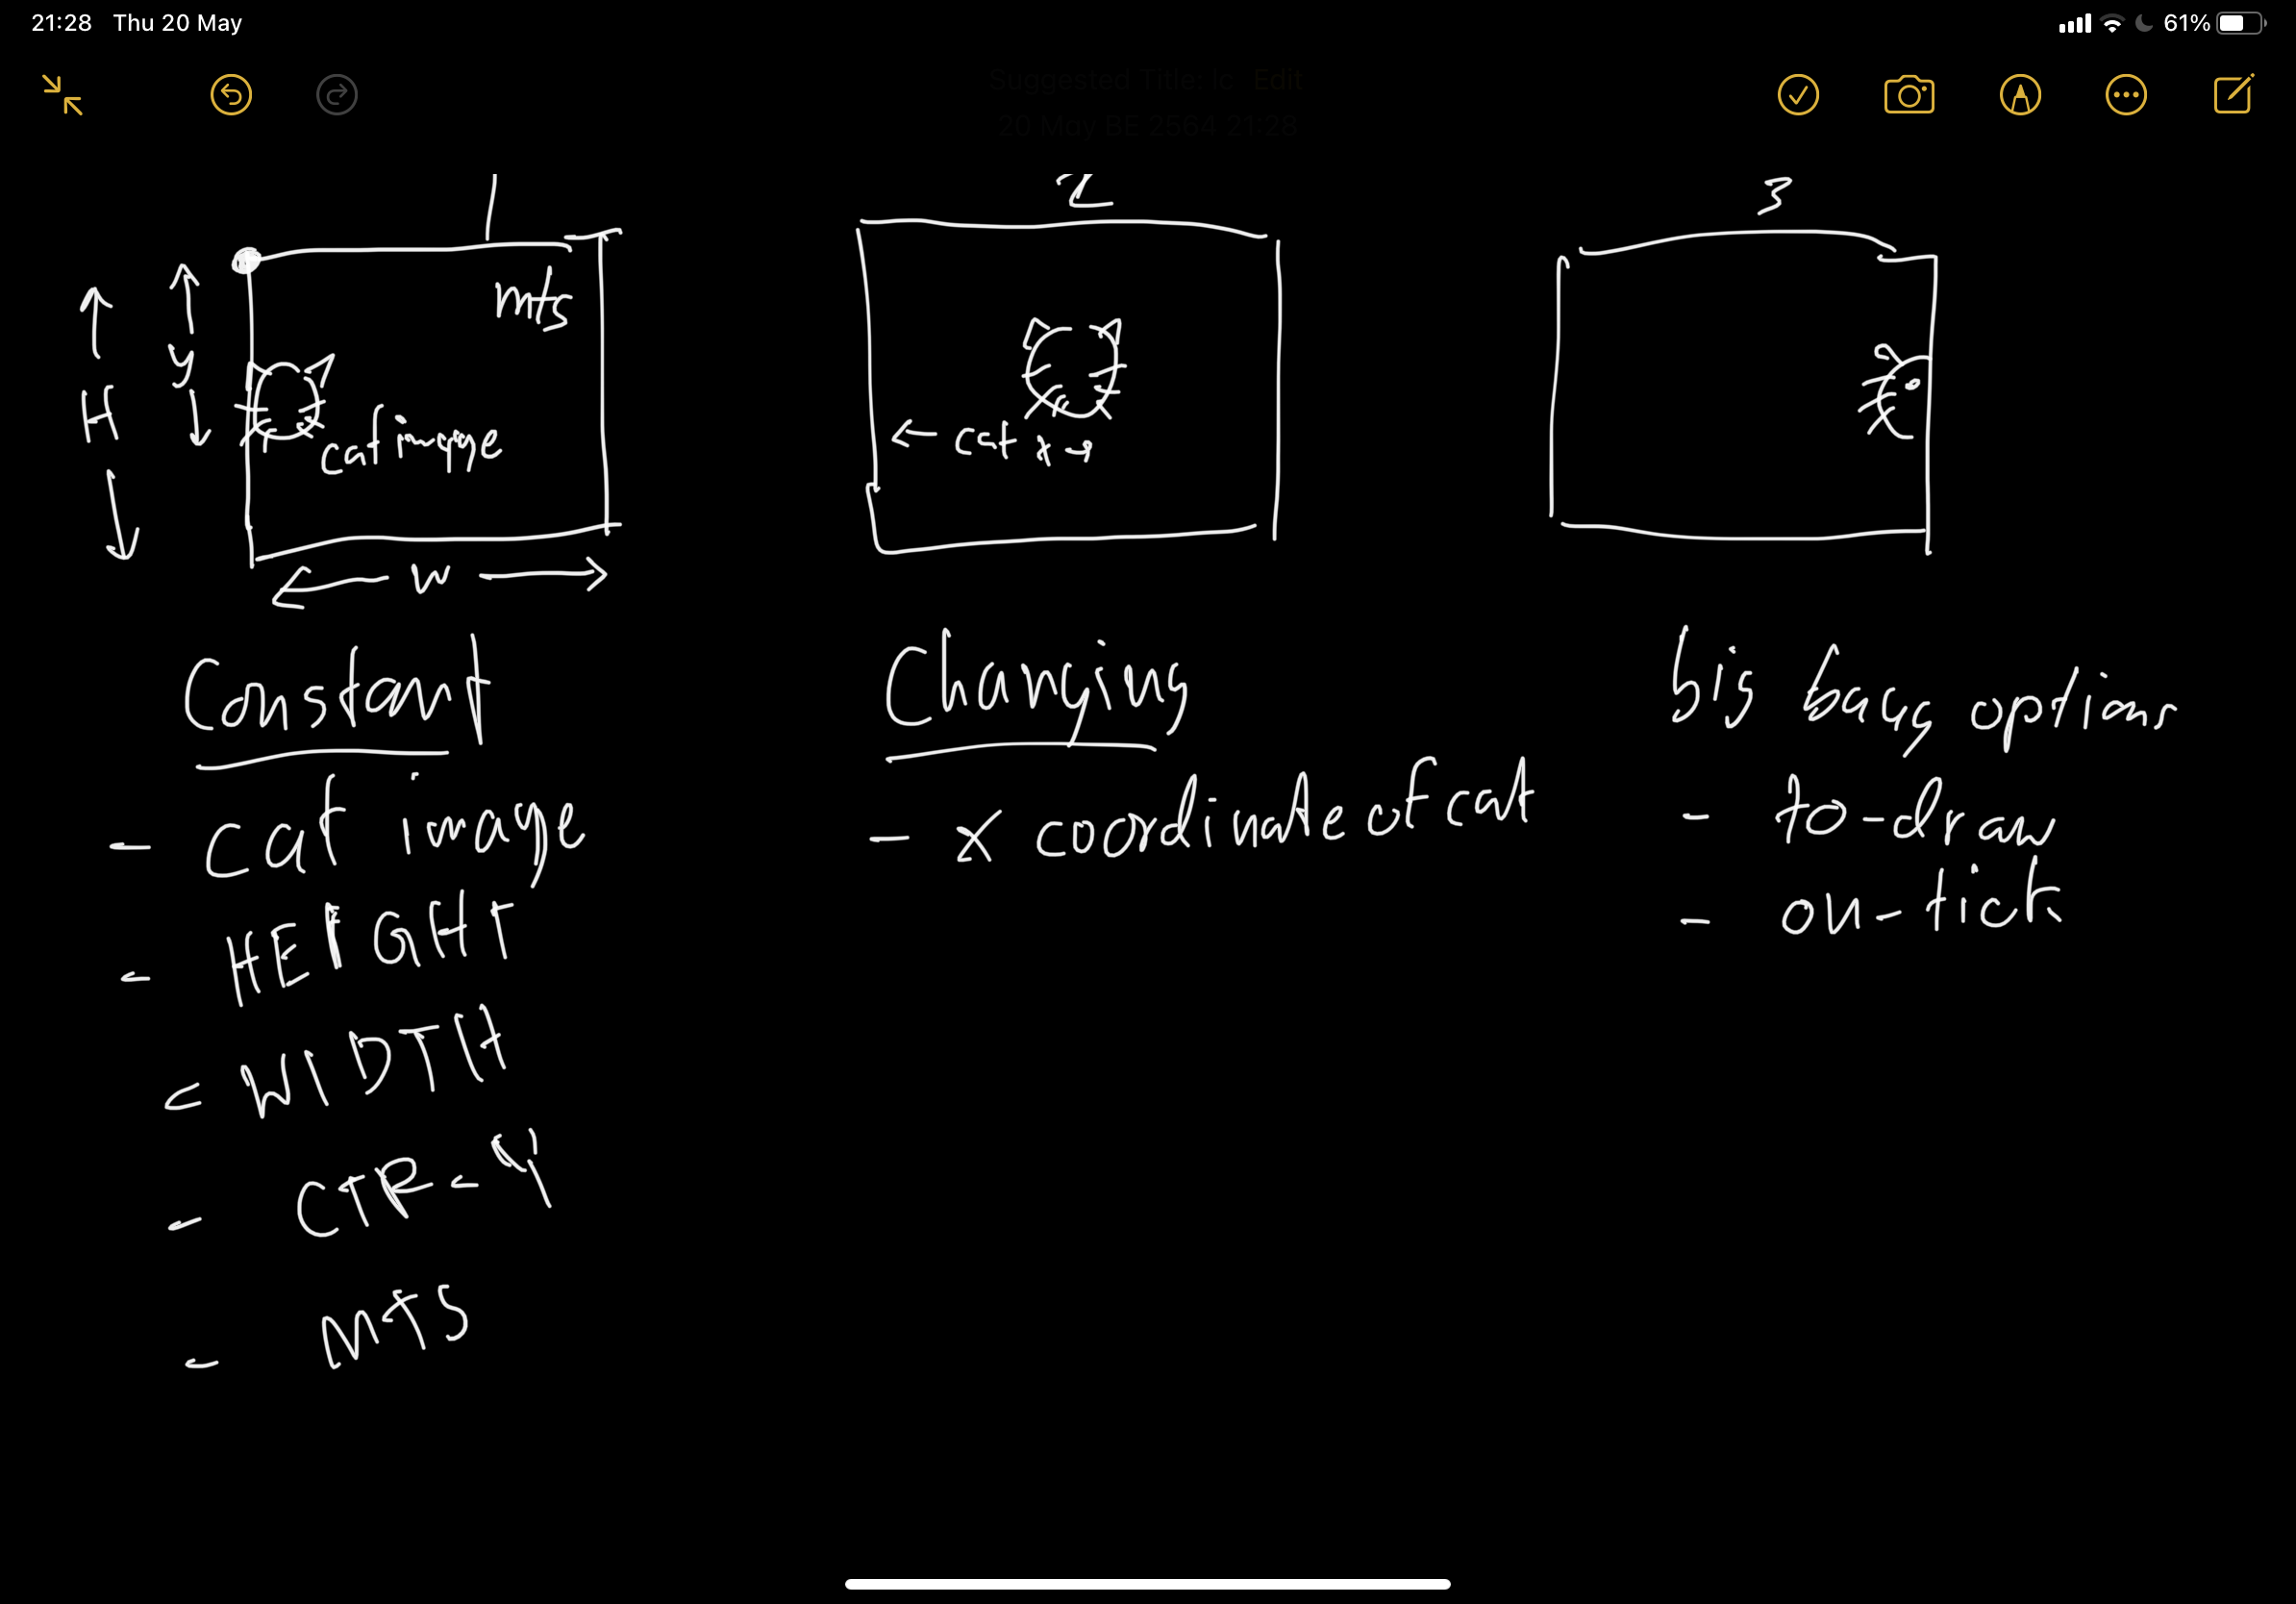 21:28 Thu 20 May
61%
Suggested Title: lc Edit
20 May BE 2564 21:28
1
2
3
mts
y
H
cat image
← cat x →
W
Constant
- cat image
- HEIGHT
- WIDTH
- CTR-Y
- MTS
Changing
- x coordinate of cat
big bang options
- to-draw
- on-tick